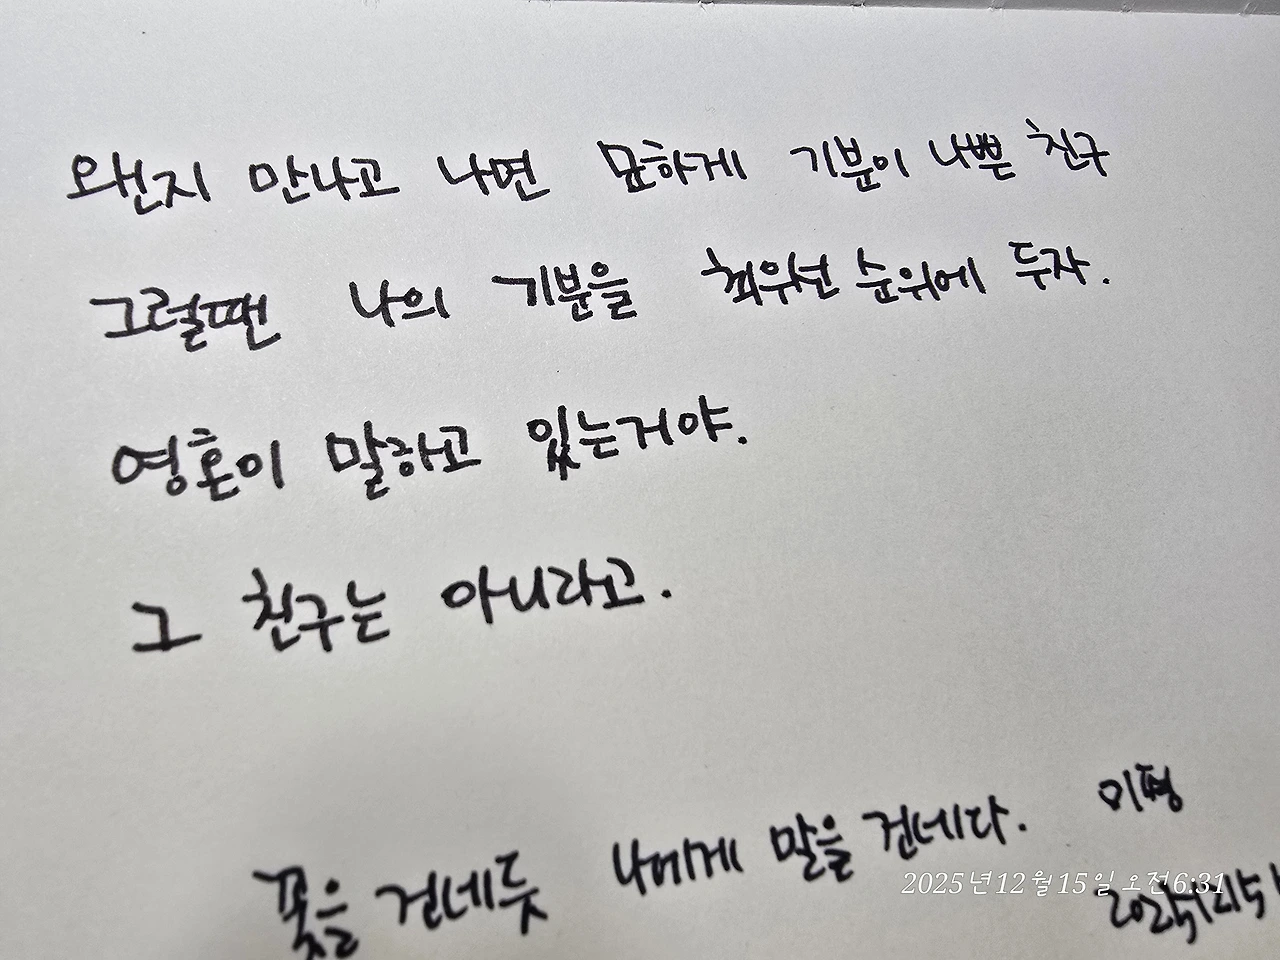 왠지 만나고 나면 묘하게 기분이 나쁜 친구
그럴땐 나의 기분을 최우선 순위에 두자.
영혼이 말하고 있는거야.
그 친구는 아니라고.
꽃을 건네듯 나에게 말을 건네다. 이평
2025년12월15일 오전6:31